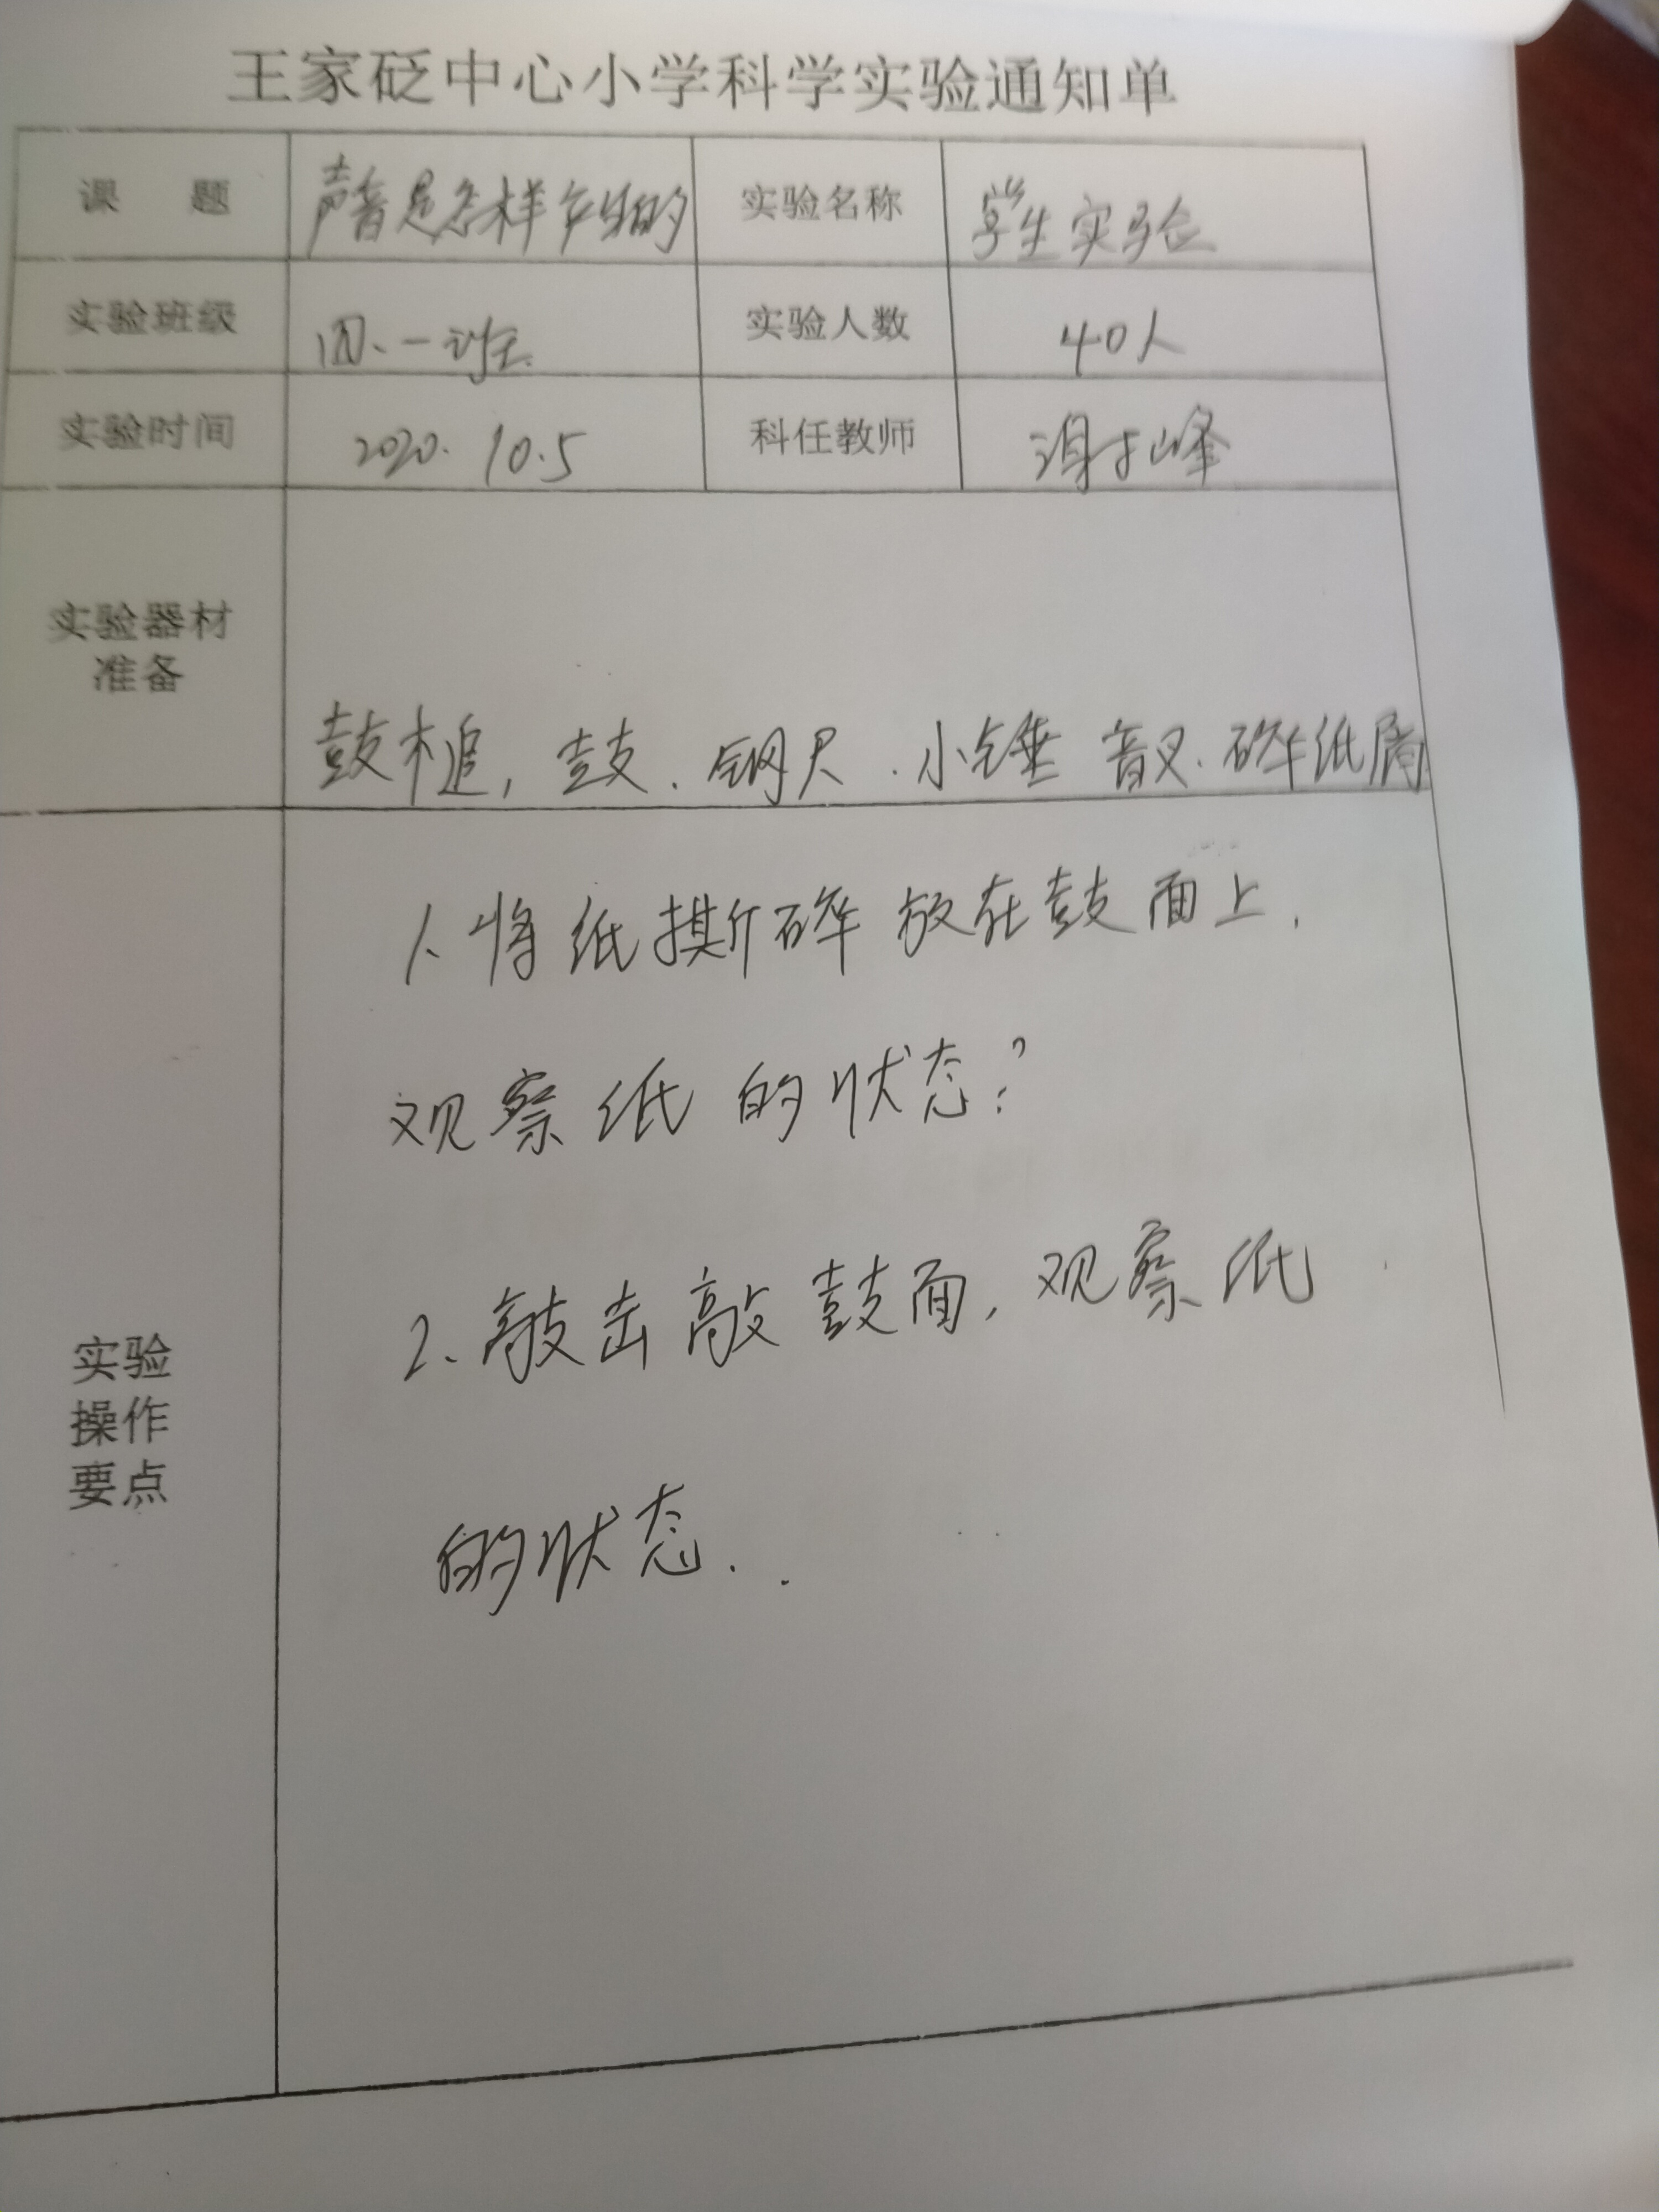 王家砭中心小学科学实验通知单
课 题 声音是怎样产生的 实验名称 学生实验
实验班级 四、一班 实验人数 40人
实验时间 2020.10.5 科任教师 峰
实验器材
准备
鼓槌,鼓.钢尺.小锤 音叉.碎纸屑
1.将纸撕碎放在鼓面上.
观察纸的状态?
实验
操作
要点
2.敲击敲鼓面,观察纸
的状态..